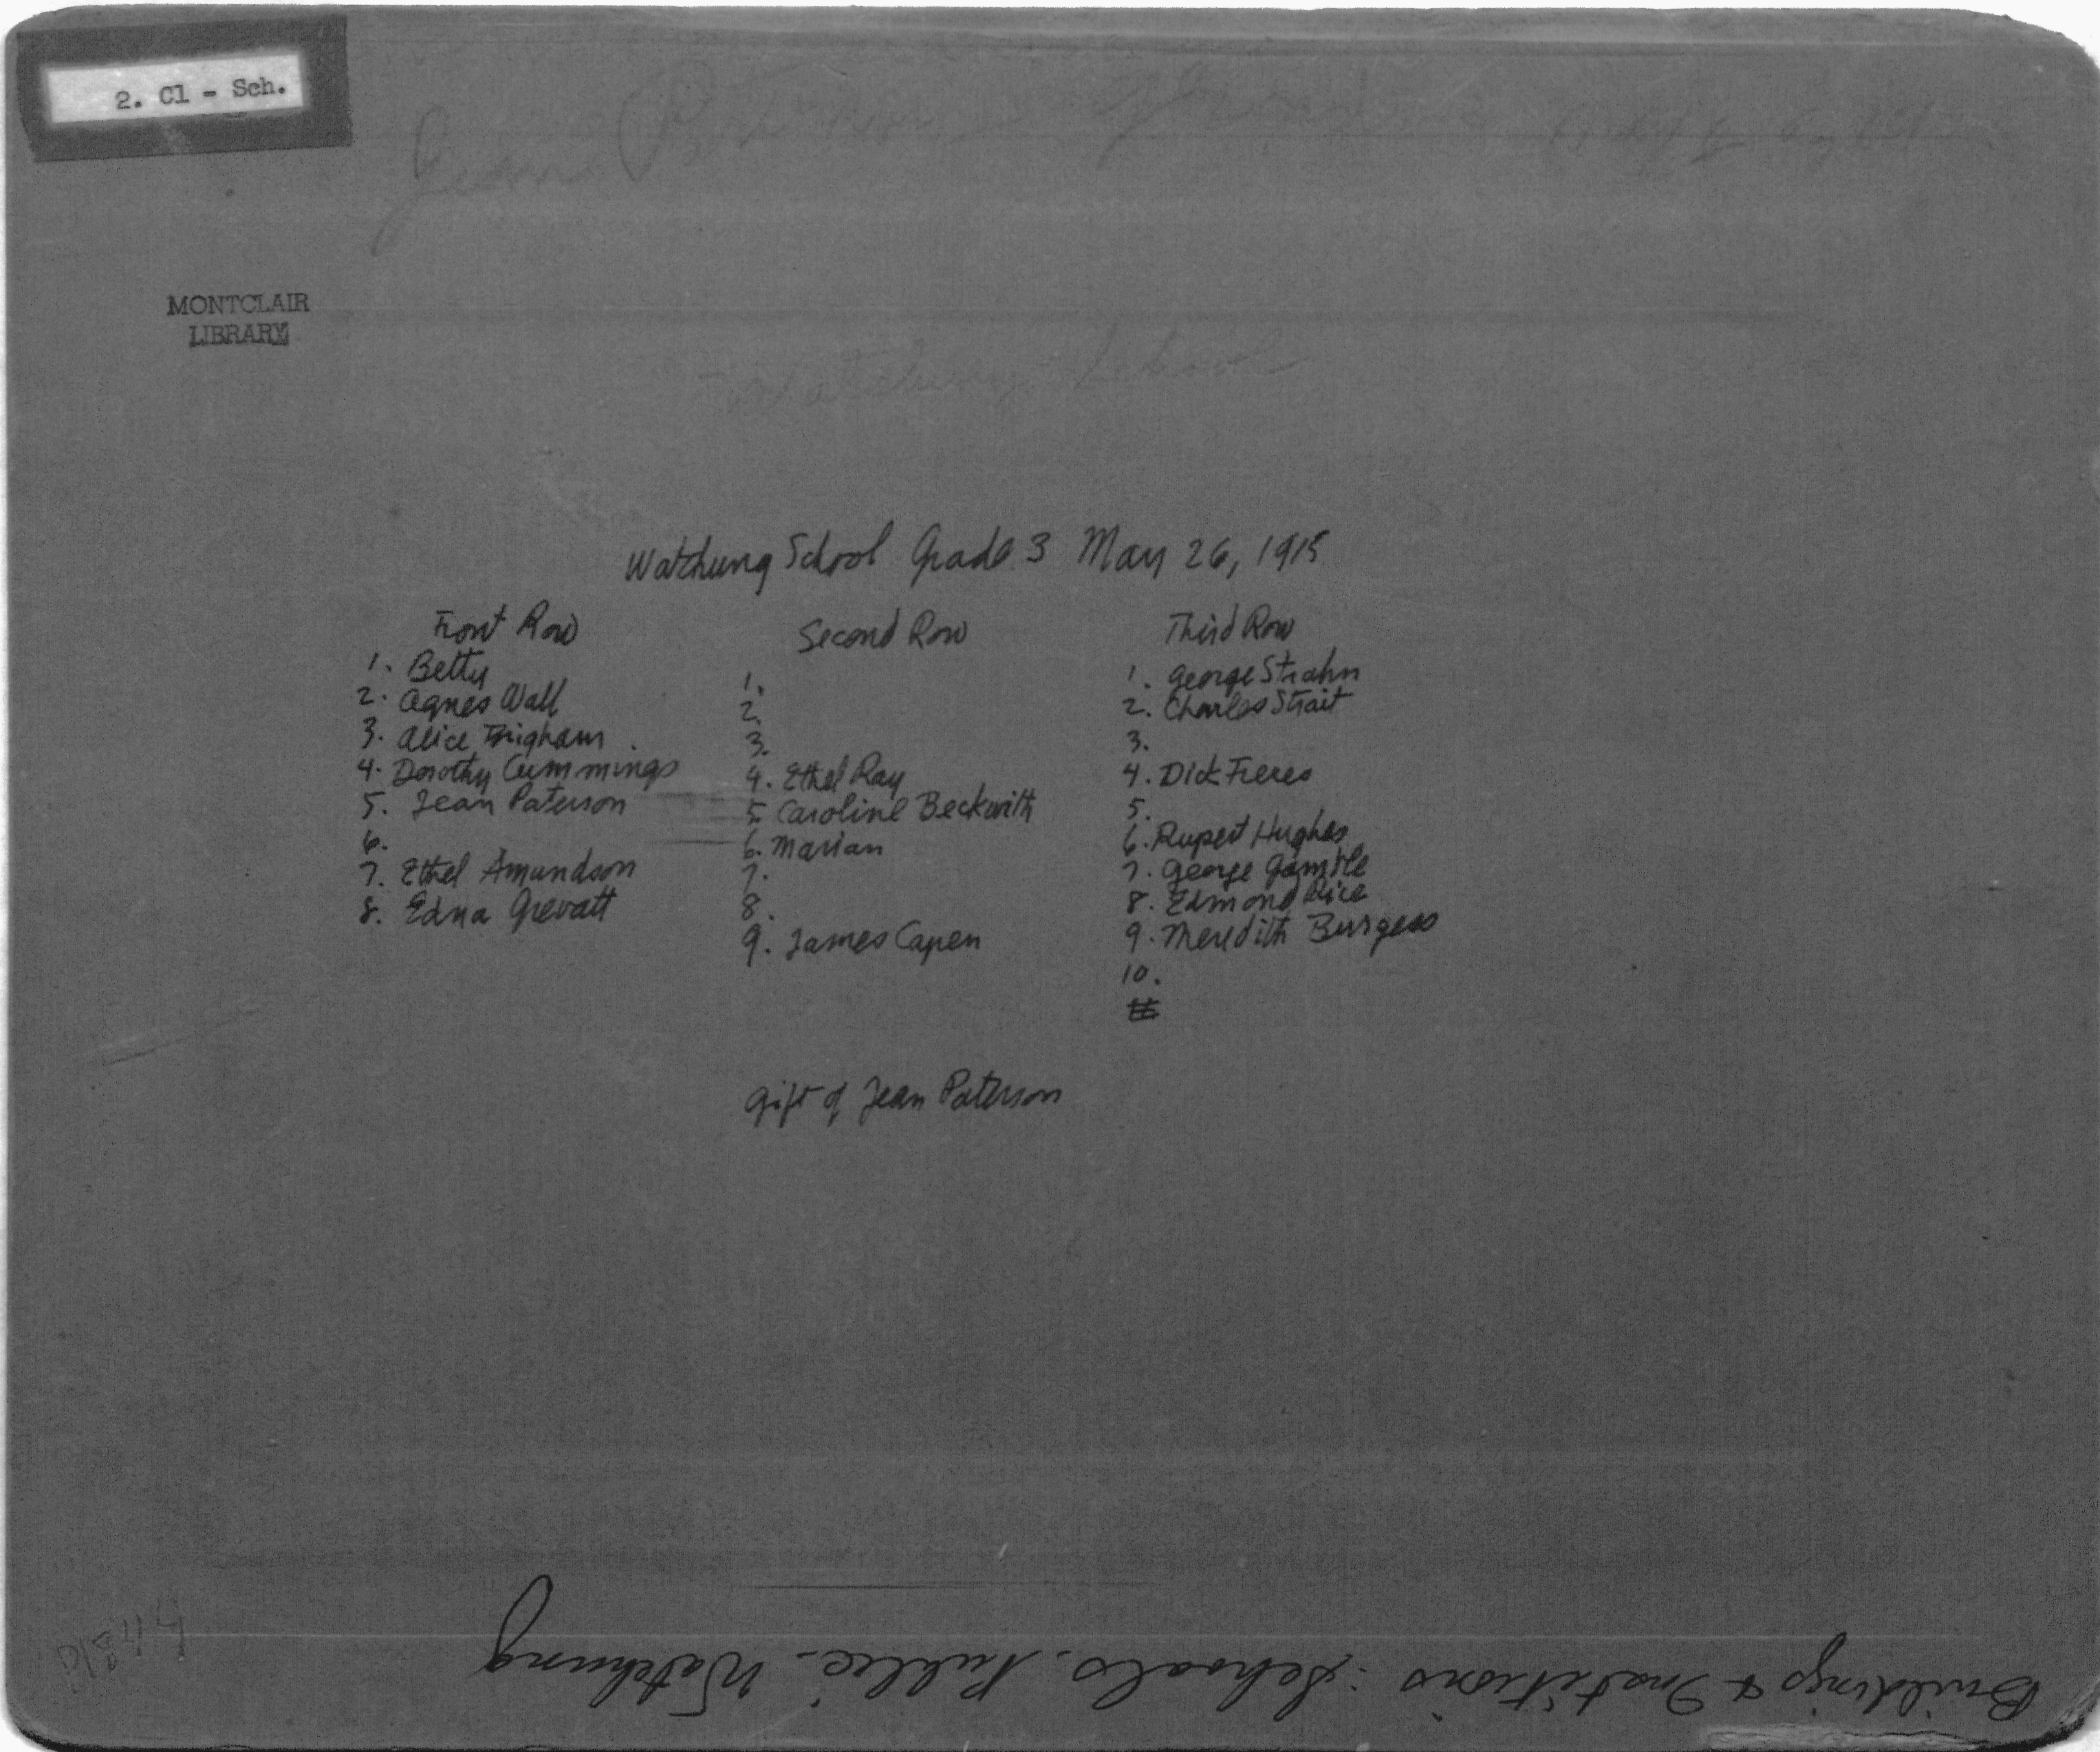 2. Cl - Sch.
Jean Paterson
MONTCLAIR
LIBRARY
Watchung School
Watchung School Grade 3 May 26, 1915
Front Row
1. Betty
2. Agnes Wall
3. Alice Brigham
4. Dorothy Cummings
5. Jean Paterson
6.
7. Ethel Amundson
8. Edna Grevatt
Second Row
1.
2.
3.
4. Ethel Ray
5. Caroline Beckwith
6. Marian
7.
8.
9. James Capen
Third Row
1. George Strahn
2. Charles Strait
3.
4. Dick Freres
5.
6. Rupert Hughes
7. George Gamble
8. Edmond Rice
9. Meredith Burgess
10.
Gift of Jean Paterson
Buildings & Institutions: Schools, Public - Watchung
P1844